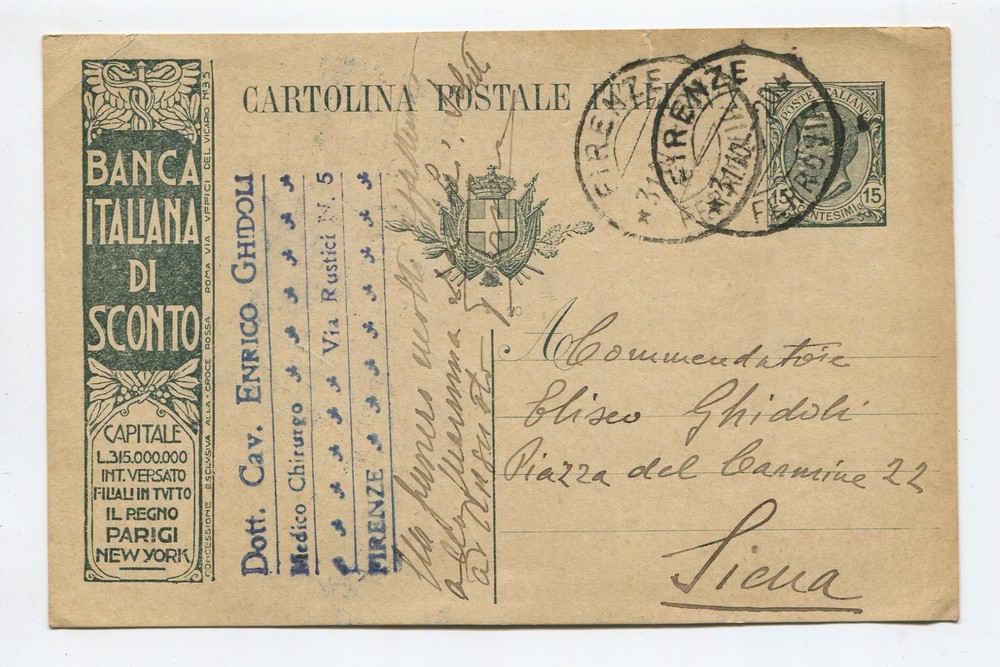 BANCA
ITALIANA
DI
SCONTO
CAPITALE
L.315.000.000
INT. VERSATO
FILIALI IN TVTTO
IL REGNO
PARIGI
NEW YORK
CONCESSIONE ESCLUSIVA ALLA CROCE ROSSA ROMA VIA VFFICI DEL VICARIO M35
Dott. Cav. ENRICO GHIDOLI
Medico Chirurgo
Via Rustici N. 5
FIRENZE
CARTOLINA POSTALE
FIRENZE
FIRENZE
FERROVIA
POSTE ITALIANE
15 CENTESIMI 15
20
A Commendatore
Eliseo Ghidoli
Piazza del Carmine 22
Siena